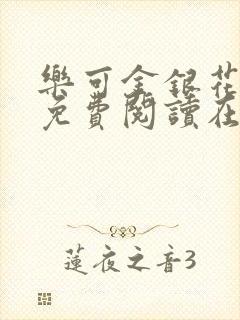 樂可金銀花
免費閱讀在
蓮夜之音3